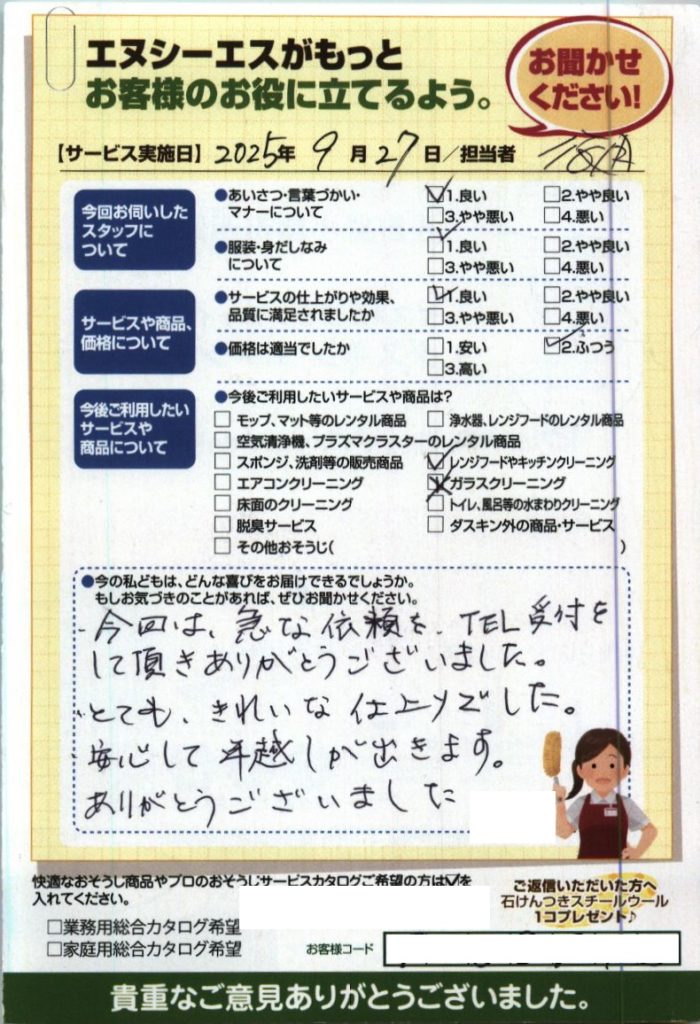 エヌシーエスがもっと
お客様のお役に立てるよう。
お聞かせ
ください!
【サービス実施日】 2025年 9月 27日/担当者
今回お伺いした
スタッフに
ついて
●あいさつ・言葉づかい・
マナーについて
☑1.良い □2.やや良い
□3.やや悪い □4.悪い
●服装・身だしなみ
について
☑1.良い □2.やや良い
□3.やや悪い □4.悪い
サービスや商品、
価格について
●サービスの仕上がりや効果、
品質に満足されましたか
☑1.良い □2.やや良い
□3.やや悪い □4.悪い
●価格は適当でしたか
□1.安い ☑2.ふつう
□3.高い
今後ご利用したい
サービスや
商品について
●今後ご利用したいサービスや商品は?
□モップ、マット等のレンタル商品 □浄水器、レンジフードのレンタル商品
□空気清浄機、プラズマクラスターのレンタル商品
□スポンジ、洗剤等の販売商品 ☑レンジフードやキッチンクリーニング
□エアコンクリーニング ☑ガラスクリーニング
□床面のクリーニング □トイレ、風呂等の水まわりクリーニング
□脱臭サービス □ダスキン外の商品・サービス
□その他おそうじ( )
●今の私どもは、どんな喜びをお届けできるでしょうか。
もしお気づきのことがあれば、ぜひお聞かせください。
・今回は、急な依頼を、TEL受付を
して頂きありがとうございました。
・とても、きれいな仕上りでした。
・安心して年越しが出きます。
ありがとうございました
快適なおそうじ商品やプロのおそうじサービスカタログご希望の方は☑を
入れてください。
□業務用総合カタログ希望
□家庭用総合カタログ希望
お客様コード
ご返信いただいた方へ
石けんつきスチールウール
1コプレゼント♪
貴重なご意見ありがとうございました。